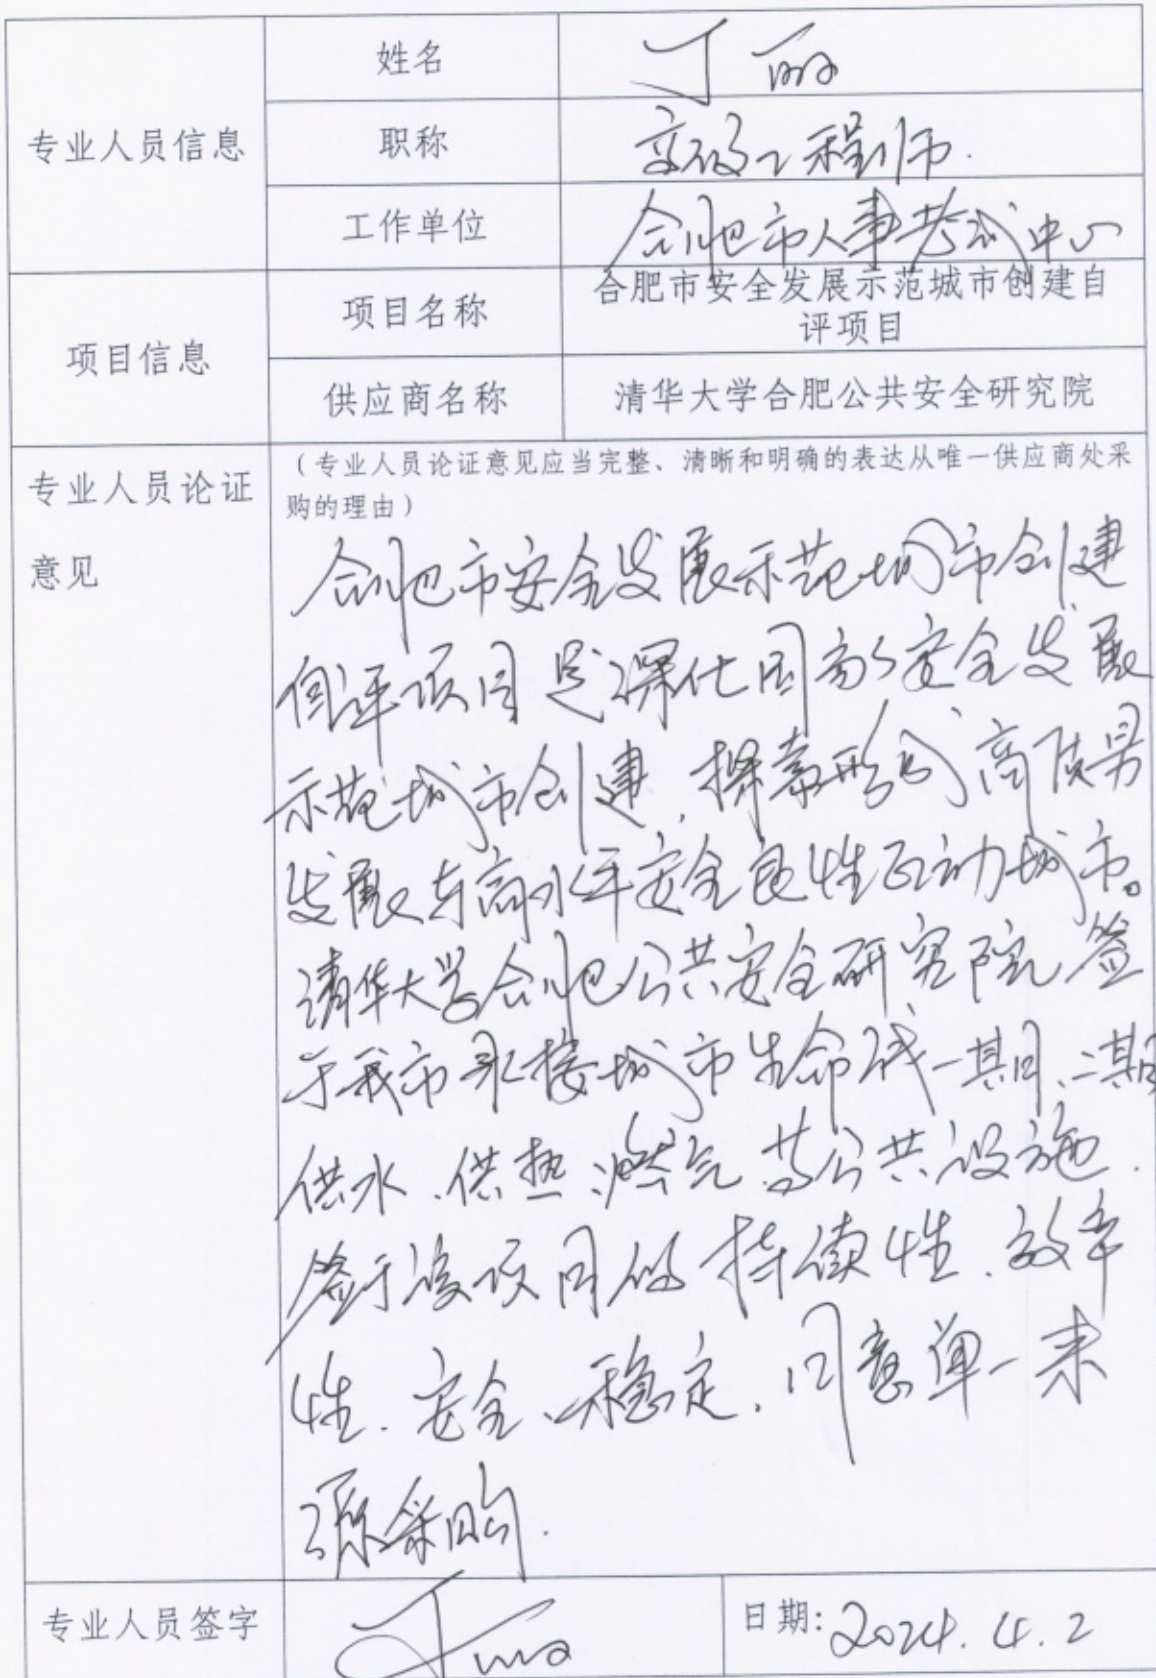 专业人员信息
姓名
丁丽
职称
高级工程师.
工作单位
合肥市人事考试中心
项目信息
项目名称
合肥市安全发展示范城市创建自
评项目
供应商名称
清华大学合肥公共安全研究院
专业人员论证
意见
(专业人员论证意见应当完整、清晰和明确的表达从唯一供应商处采
购的理由)
合肥市安全发展示范城市创建
自评项目是深化国家安全发展
示范城市创建,探索形成高质量
发展与高水平安全良性互动城市。
清华大学合肥公共安全研究院鉴
于我市承接城市生命线一期、二期
供水、供热、燃气等公共设施.
鉴于该项目的持续性、效率
性、安全、稳定,同意单一来
源采购.
专业人员签字
丁丽
日期:2024.4.2